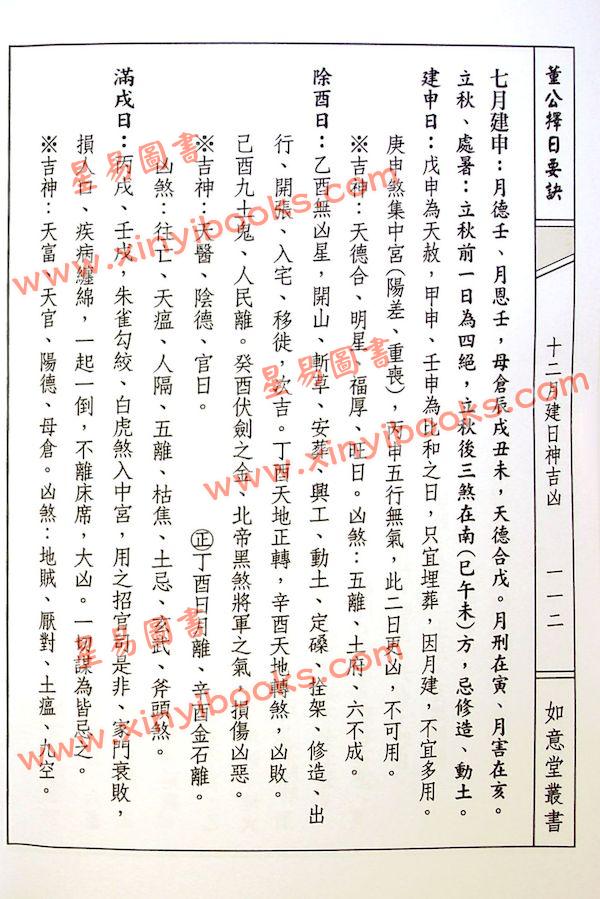 董公擇日要訣
十二月建日神吉凶
一一二
如意堂叢書
七月建申：月德壬、月恩壬，母倉辰戌丑未，天德合戊。月刑在寅、月害在亥。
立秋、處暑：立秋前一日為四絕，立秋後三煞在南(巳午未)方，忌修造、動土。
建申日：戊申為天赦，甲申、壬申為比和之日，只宜埋葬，因月建，不宜多用。
庚申煞集中宮(陽差、重喪)，丙申五行無氣，此二日更凶，不可用。
※吉神：天德合、明星、福厚、旺日。凶煞：五離、土府、六不成。
除酉日：乙酉無凶星，開山、斬草、安葬、興工、動土、定磉、拴架、修造、出
行、開張、入宅、移徙，次吉。丁酉天地正轉，辛酉天地轉煞，凶敗。
己酉九土鬼、人民離。癸酉伏劍之金、北帝黑煞將軍之氣，損傷凶惡。
※吉神：天醫、陰德、官日。
㊣丁酉日月離、辛酉金石離。
凶煞：往亡、天瘟、人隔、五離、枯焦、土忌、玄武、斧頭煞。
滿戌日：丙戌、壬戌，朱雀勾絞、白虎煞入中宮，用之招官司是非、家門衰敗，
損人口、疾病纏綿，一起一倒，不離床席，大凶。一切謀為皆忌之。
※吉神：天富、天官、陽德、母倉。凶煞：地賊、厭對、土瘟、九空。
星易圖書
www.xinyibooks.com
星易圖書
www.xinyibooks.com
星易圖書
www.xinyibooks.com